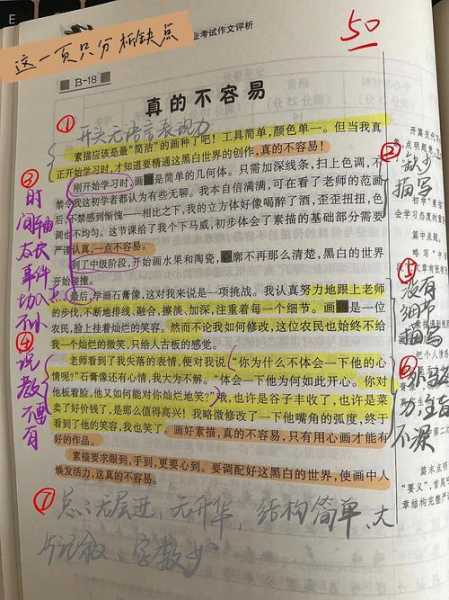 E
50
业考试作文评析
这一页只分析缺点
B-18
真的不容易
① 开头无语言表现力
素描应该是最“简洁”的画种了吧！工具简单，颜色单一。但当我真
正开始学习时，才知道要精通这黑白世界的创作，真的不容易！
刚开始学习时，画的是简单的几何体。只需加深线条，扫上色调，不
禁令我这初学者都认为有些无聊。我本自信满满，可在看了老师的范画
后，不禁感到惭愧——相比之下，我的立方体好像喝醉了酒，歪歪扭扭，色
调也不均匀。这节课给了我个下马威，初步体会了素描的基础部分需要
严谨认真，一点不容易。
到了中级阶段，开始画水果和陶瓷，
廓不再那么清楚，黑白的世界
开始
最后，
画石膏像，这对我来说是一项挑战。我认真努力地跟上老师
的步伐，不断地排线、融合、擦淡、加深，注重着每一个细节。画的是一位
农民，脸上挂着灿烂的笑容。然而不论我如何修改，这位农民也始终不给
我一个灿烂的微笑，只给人古板的感觉。
老师看到了我失落的表情，便对我说：“你为什么不体会一下他的心
情呢？”石膏像还有心情，我大为不解。“体会一下他为何如此开心。你对
他板着脸，他又如何能对你灿烂地笑？”哦，也许是谷子丰收了，也许是菜
卖了好价钱了，是那么值得高兴！我略微修改了一下他嘴角的弧度，终于
看到了他的笑容，我也笑了。画好素描，真的不容易，只有用心画才能有
好的作品。
素描要求眼到，手到，更要心到。要调配好这黑白的世界，使画中人
焕发活力，这真的不容易。
② 缺少
描写
③ 时
间轴
太长
事件
切入
不小
④ 说
教
不曾
有
⑤ 没有
细节
描写
⑥
不深
⑦ 总：无层进，无升华，结构简单、大
字数少